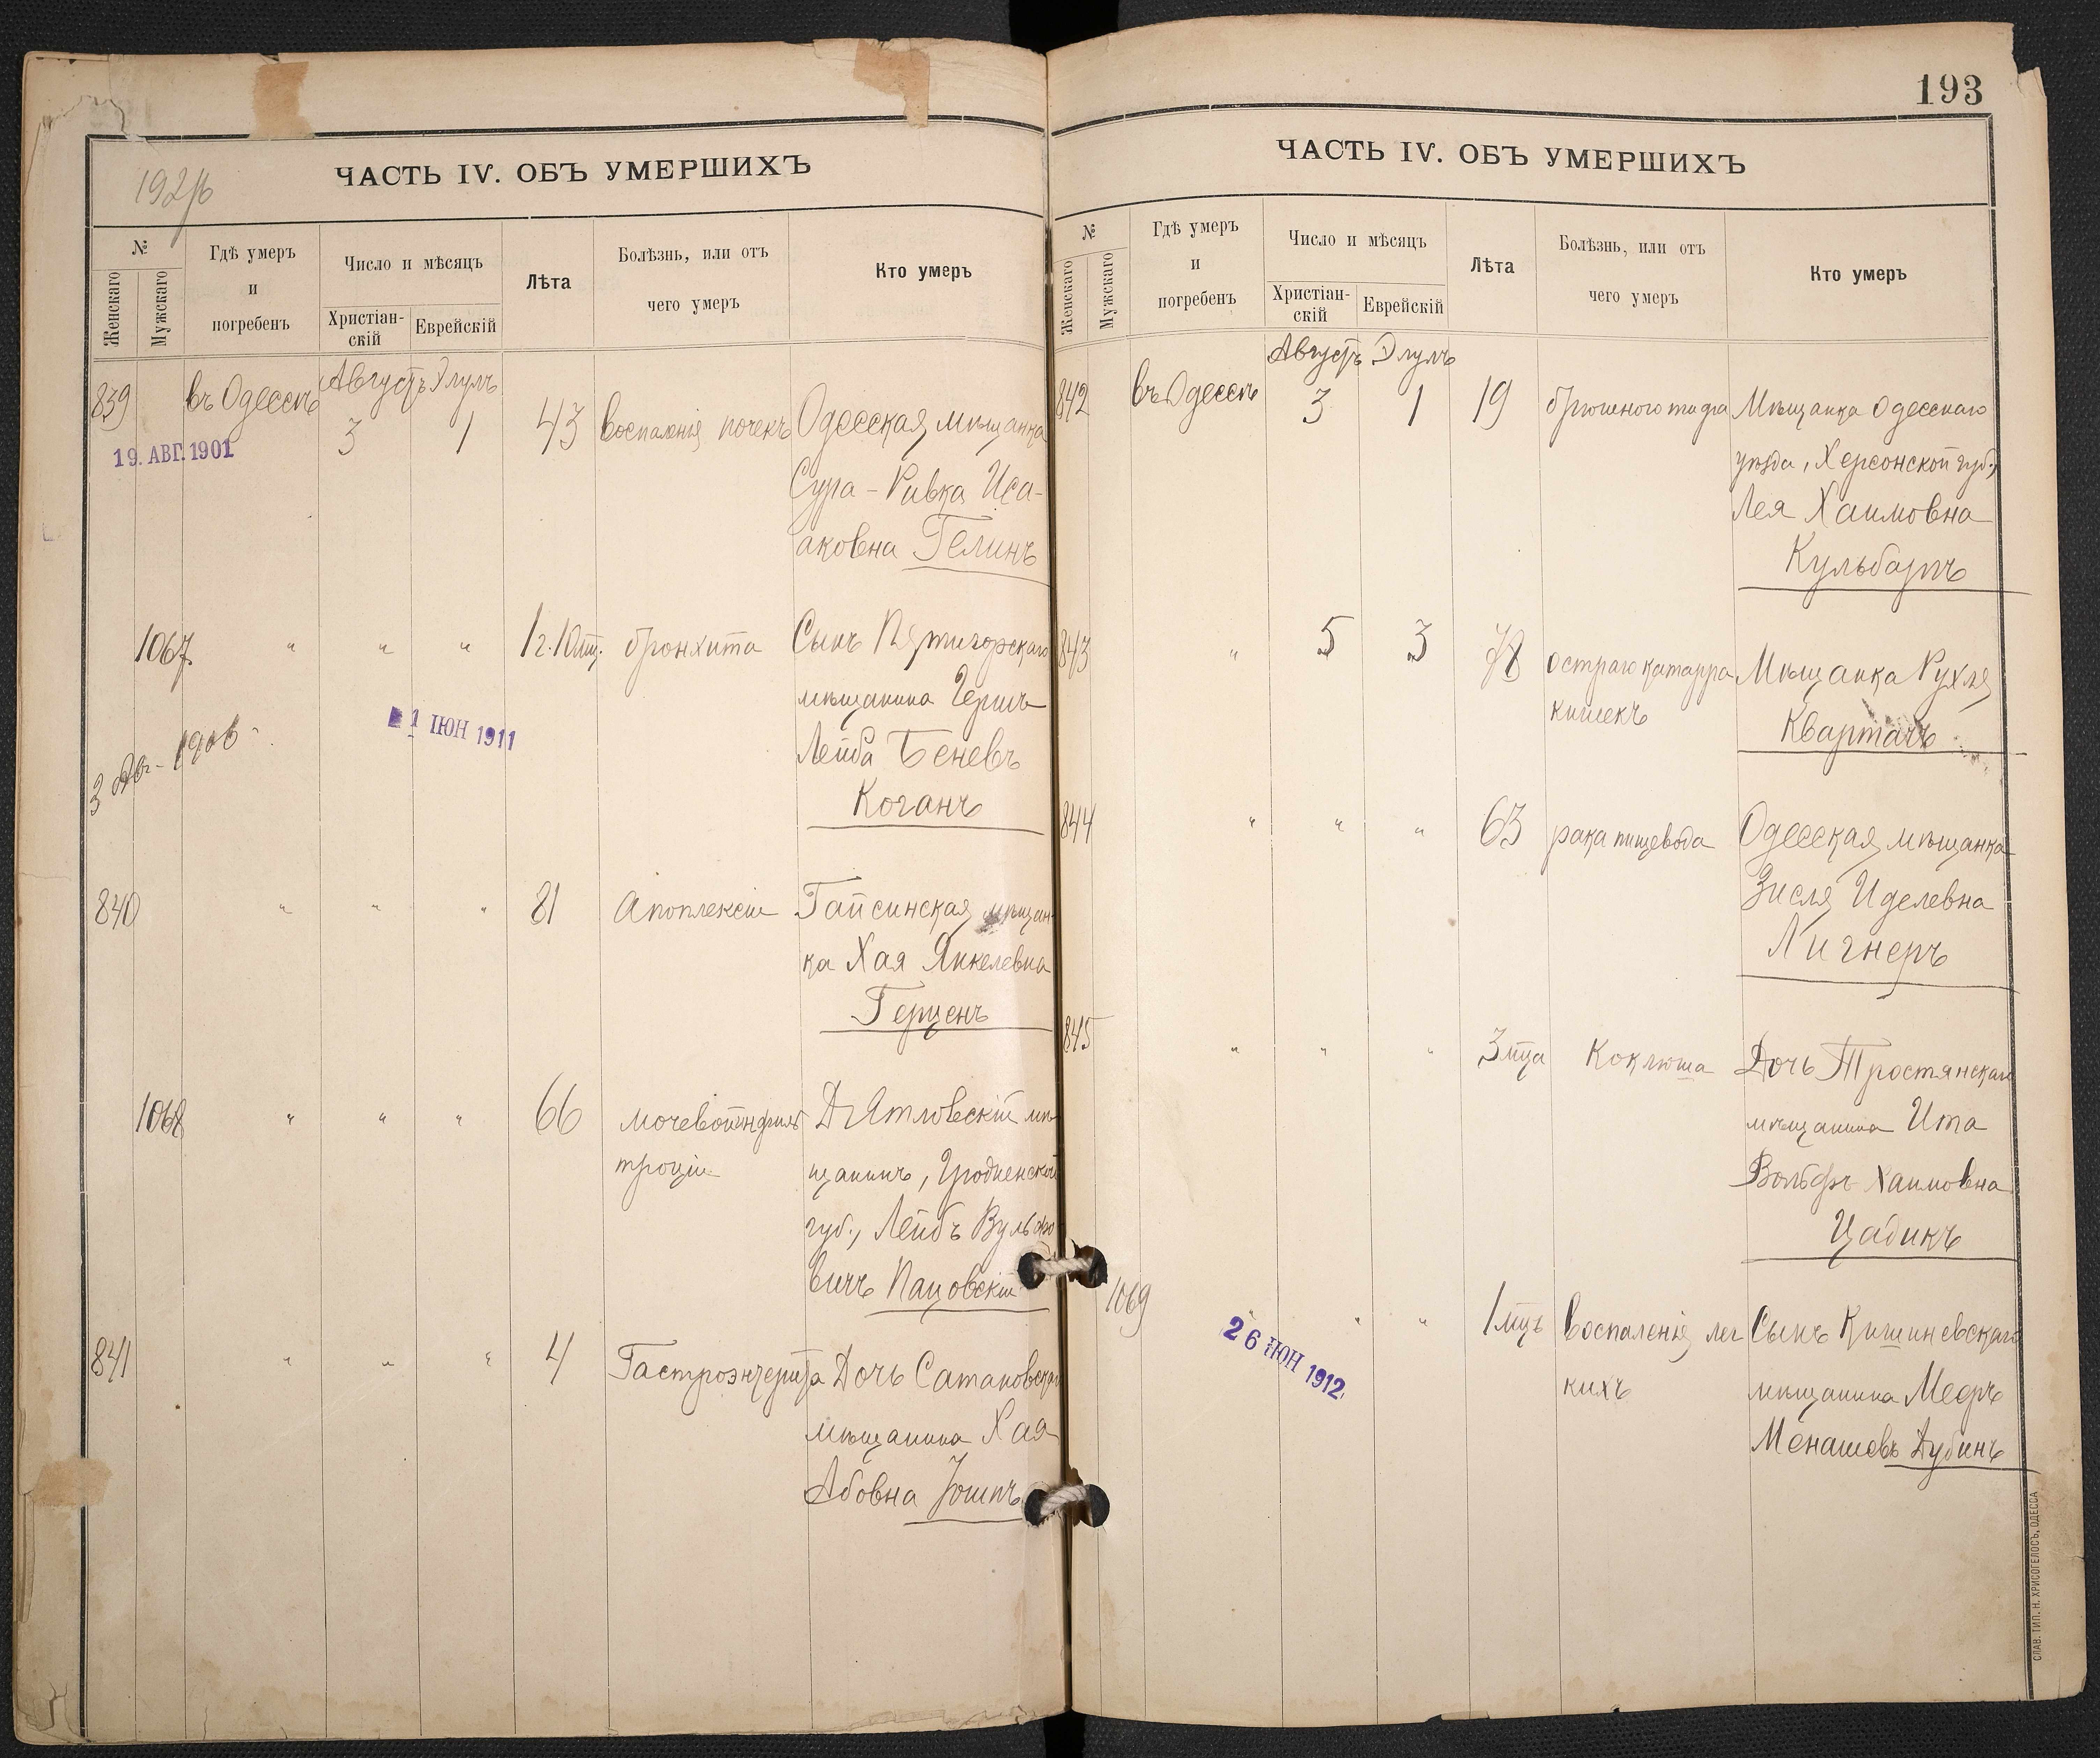 192/б
ЧАСТЬ IV. ОБЪ УМЕРШИХЪ
№
Женскаго
Мужскаго
Гдѣ умеръ
и
погребенъ
Число и мѣсяцъ
Христіан-
скій
Еврейскій
Лѣта
Болѣзнь, или отъ
чего умеръ
Кто умеръ
Августъ Элулъ
839 въ Одессѣ 3 1 43 воспаленія почекъ Одесская мѣщанка
19. АВГ. 1901
Сура-Ривка Иса-
аковна Гелинъ
1067 " " " 1 г. 10 мц. бронхита Сынъ Пятигорскаго
мѣщанина Герш
Лейба Беневъ
Коганъ
1 ІЮН 1911
3 Ав- 1906-
840 " " " 81 Апоплексіи Гайсинская мѣщан-
ка Хая Янкелевна
Герценъ
1068 " " " 66 мочевой инфиль Дятловскій мѣ-
троціи щанинъ, Гродненской
губ., Лейбъ Вульфо
вичъ Пацовскій
841 " " " 4 Гастроэнтерита Дочь Сатановскаго
мѣщанина Хая
Абовна
193
ЧАСТЬ IV. ОБЪ УМЕРШИХЪ
№
Женскаго
Мужскаго
Гдѣ умеръ
и
погребенъ
Число и мѣсяцъ
Христіан-
скій
Еврейскій
Лѣта
Болѣзнь, или отъ
чего умеръ
Кто умеръ
Августъ Элулъ
842 въ Одессѣ 3 1 19 брюшного тифа Мѣщанка Одесскаго
уѣзда, Херсонской губ.,
Лея Хаимовна
Кульбартъ
843 " 5 3 78 остраго катарра Мѣщанка Рухля
кишекъ Квартачъ
844 " " " 63 рака пищевода Одесская мѣщанка
Зисля Иделевна
Лигнеръ
845 " " " 3 мца Коклюша Дочь Тростянскаго
мѣщанина Ита
Вольфъ Хаимовна
Цадикъ
1069 " " " 1 мцъ воспаленія лег Сынъ Кишиневскаго
кихъ мѣщанина Меоръ
Менашевъ Дубинъ
26 ІЮН 1912
СЛАВ. ТИП. Н. ХРИСОГЕЛОСЪ, ОДЕССА